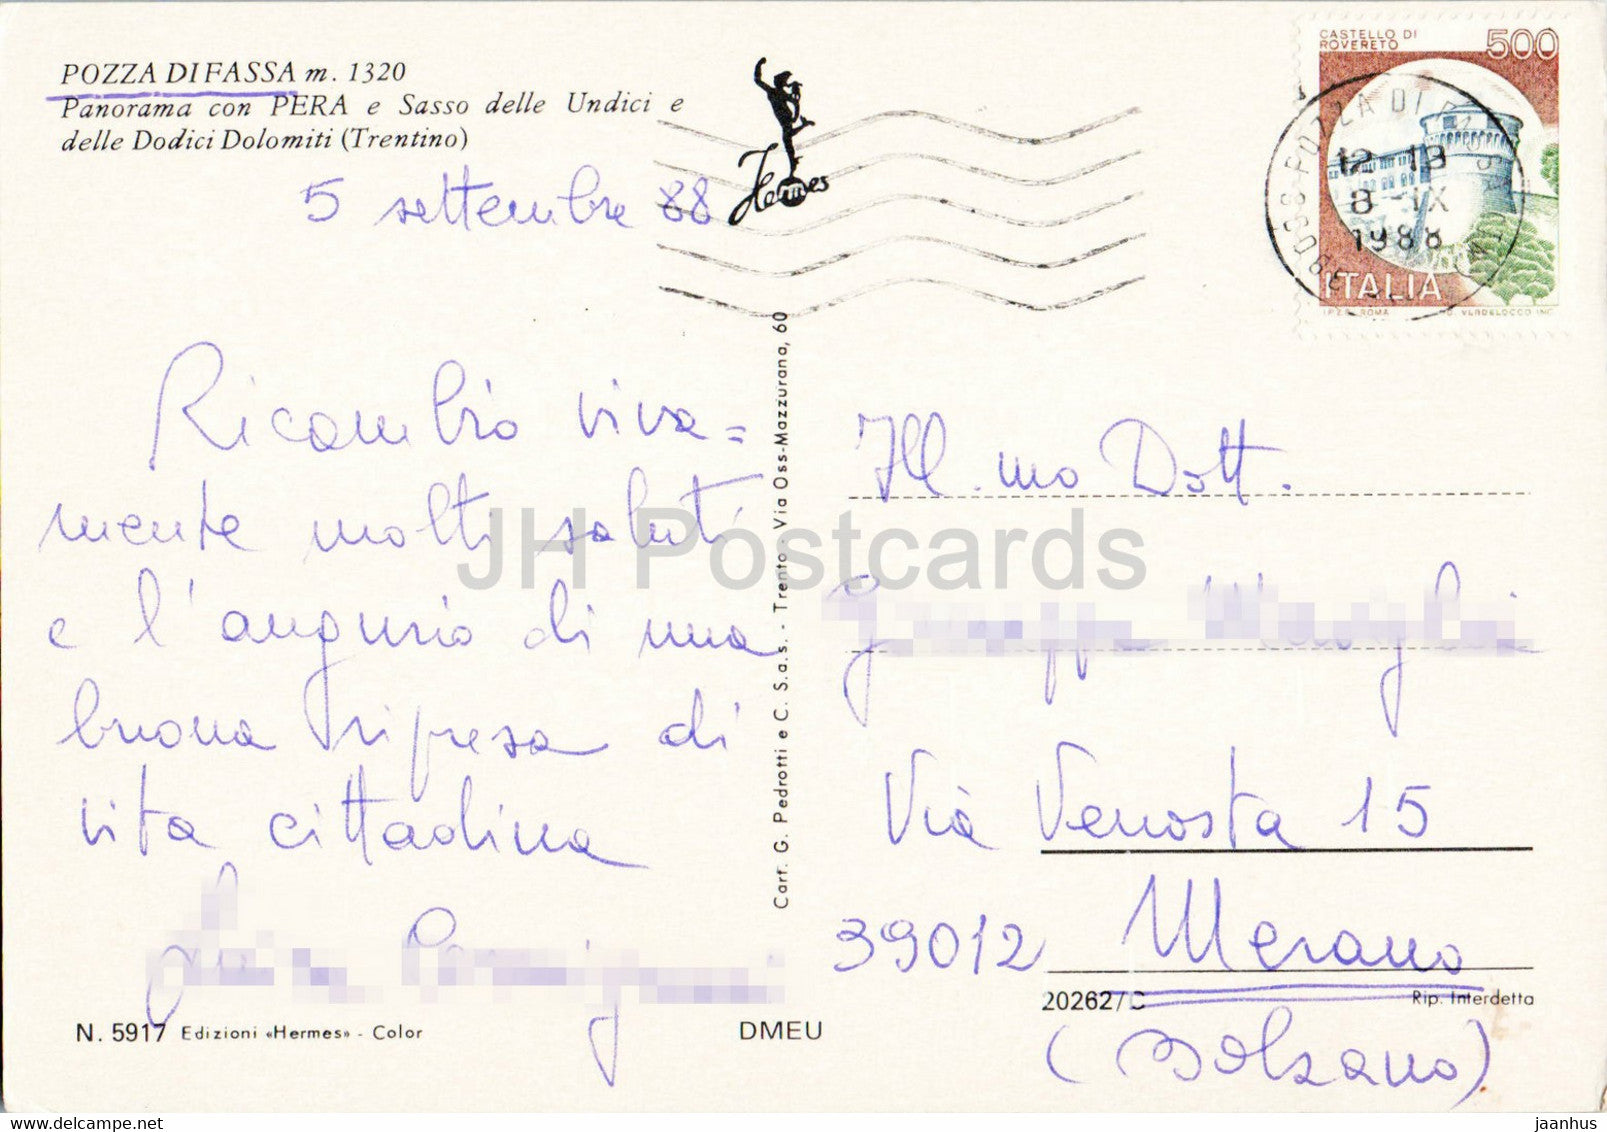 POZZA DI FASSA m. 1320
Panorama con PERA e Sasso delle Undici e
delle Dodici Dolomiti (Trentino)
5 settembre 88
Hermes
CASTELLO DI
ROVERETO
500
POZZA DI
12-13
8-IX
1988
ITALIA
I.P.Z.S. ROMA
Ricambio viva=
mente molti saluti
e l'augurio di una
buona ripresa di
vita cittadina
Cart. G. Pedrotti e C. S.a.s. - Trento - Via Oss-Mazzurana, 60
Ill.mo Dott.
Via Venosta 15
39012 Merano
(Bolzano)
N. 5917 Edizioni «Hermes» - Color
DMEU
20262/C
Rip. Interdetta
JH Postcards
jaanhus
delcampe.net